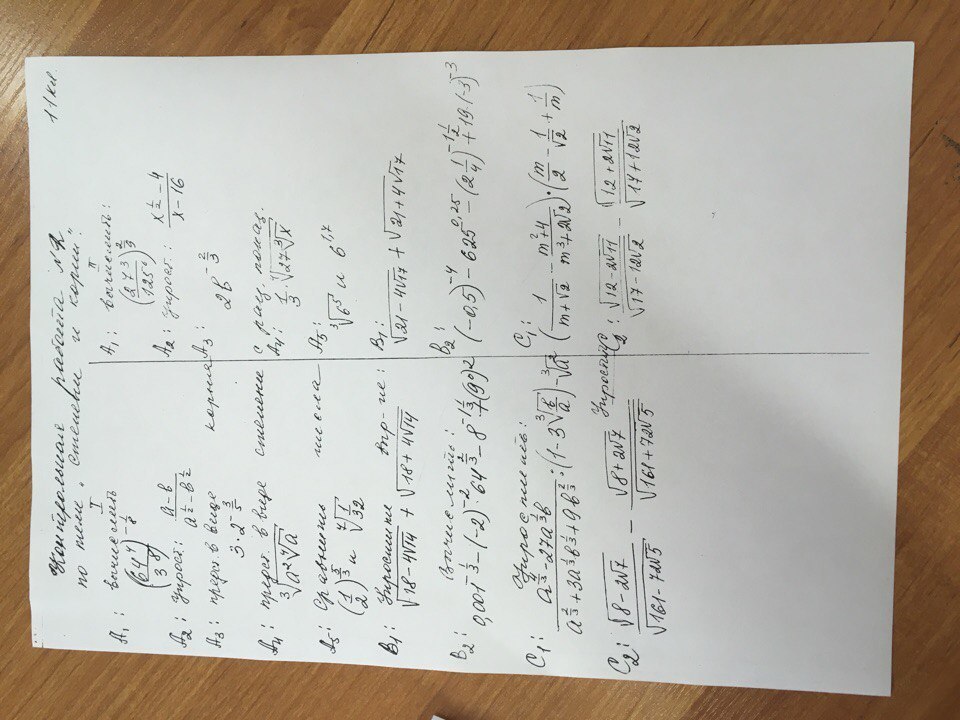 Контрольная работа №2 11 кл.
по теме „Степени и корни".
I
A₁: вычислить
(64⁴/3⁸)^(-1/8)
A₂: упрост: (a-b)/(a^(1/2)-b^(1/2))
A₃: предс в виде корня
3·2^(-3/5)
A₄: предст в виде степени с рац. показ.
∛(a²⁴√a)
A₅: Сравнить числа
(1/2)^(5/3) и ⁴√(1/32)
B₁: Упростить выр-ие:
√(18-4√14) + √(18+4√14)
B₂: Вычислить:
0,001^(-1/3)-(-2)^(-2)·64^(2/3)-8^(-1 1/3)+(9⁰)²
C₁: Упростить:
(a^(4/3)-27a^(1/3)b)/(a^(2/3)+3a^(1/3)b^(1/3)+9b^(2/3)):(1-3∛(b/a))-∛a²
C₂: √(8-2√7)/√(161-72√5) - √(8+2√7)/√(161+72√5)
II
A₁: вычислить:
(27³/125⁶)^(2/3)
A₂: упрост: (x^(1/2)-4)/(x-16)
A₃:
2b^(-2/3)
A₄: 1/3·∛(27∛x)
A₅:
∛6⁵ и 6^(1,7)
B₁:
√(21-4√17) + √(21+4√17)
B₂:
(-0,5)^(-4) - 625^(0,25) - (2 1/4)^(-1 1/2) + 19·(-3)^(-3)
C₁:
(1/(m+√2) - (m²+4)/(m³+2√2))·(m/2 - 1/√2 + 1/m)
Упростить
C₂: √(12-2√11)/√(17-12√2) - √(12+2√11)/√(17+12√2)